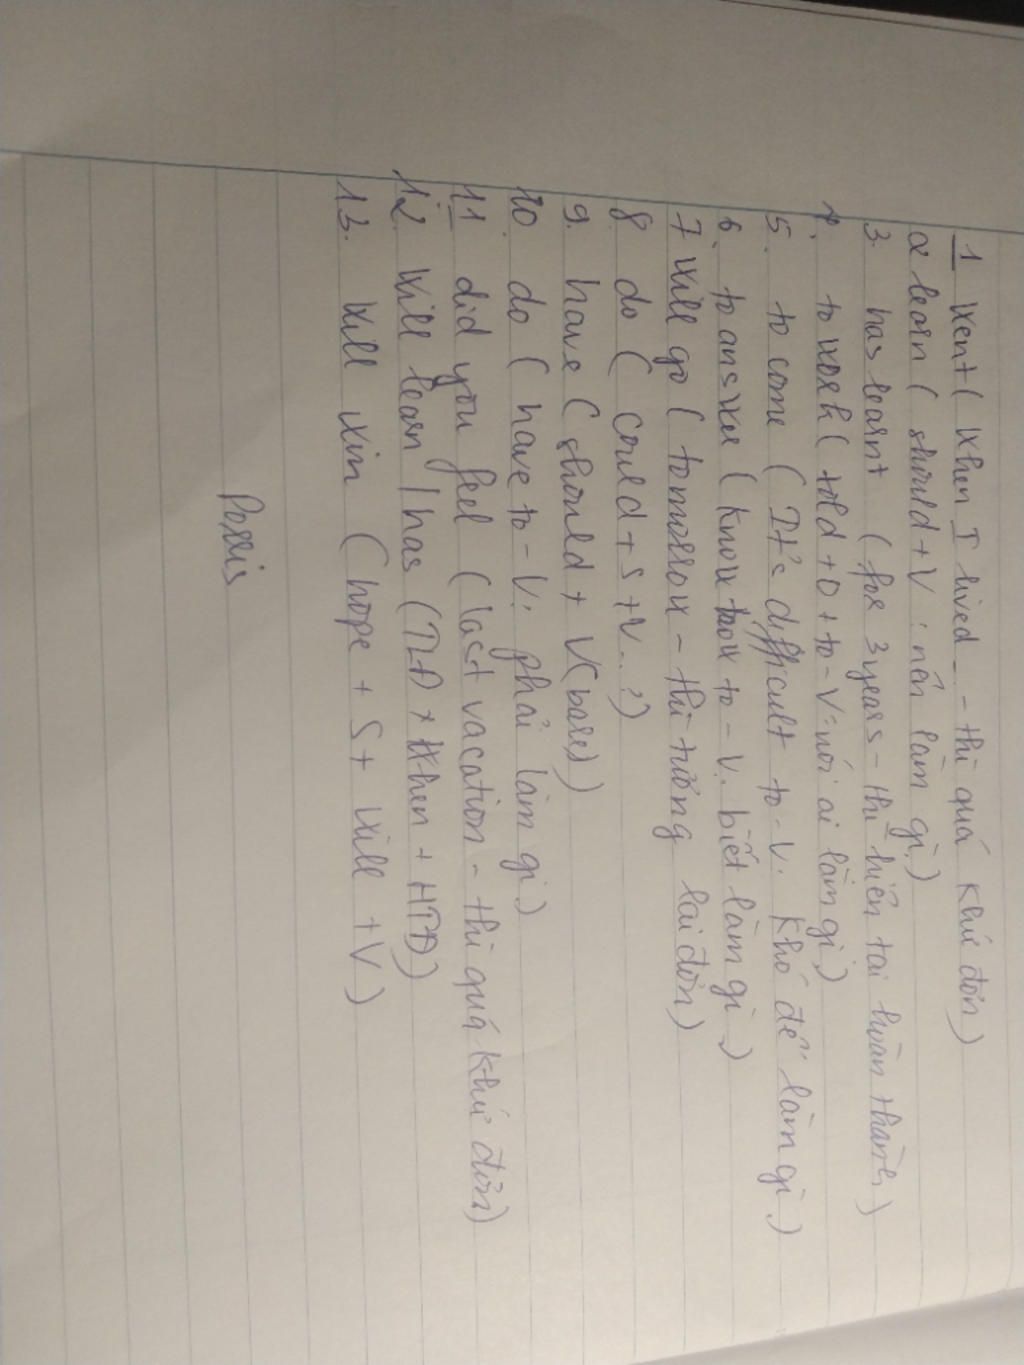 1 Went ( When I lived... - thì quá khứ đơn)
2 learn ( should + V : nên làm gì)
3. has learnt (for 3 years - thì hiện tại hoàn thành)
4. to work ( told + O + to - V: nói ai làm gì)
5. to come ( It's difficult to - V. khó để làm gì)
6. to answer ( know how to - V. biết làm gì)
7 Will go ( tomorrow - thì tương lai đơn)
8. do ( could + S + V...?)
9. have ( should + V(bare))
10. do ( have to - V: phải làm gì)
11 did you feel ( last vacation - thì quá khứ đơn)
12. Will learn / has (TLĐ + When + HTĐ)
13. Will win ( hope + S + will + V)